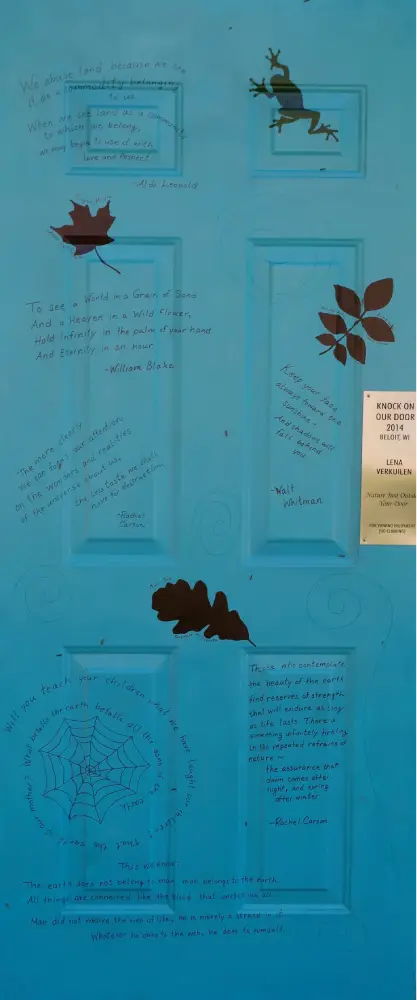 We abuse land because we see
it as a commodity belonging
to us.
When we see land as a community
to which we belong,
we may begin to use it with
love and respect.
-Aldo Leopold
To see a World in a Grain of Sand
And a Heaven in a Wild Flower,
Hold Infinity in the palm of your hand
And Eternity in an hour
-William Blake
Keep your face
always toward the
sunshine -
And shadows will
fall behind
you
-Walt
Whitman
KNOCK ON
OUR DOOR
2014
BELOIT, WI
LENA
VERKUILEN
Nature Just Outside
Your Door
The more clearly
we can focus our attention
on the wonders and realities
of the universe about us,
the less taste we shall
have for destruction.
-Rachel
Carson
Those who contemplate
the beauty of the earth
find reserves of strength
that will endure as long
as life lasts. There is
something infinitely healing
in the repeated refrains of
nature -
the assurance that
dawn comes after
night, and spring
after winter
-Rachel Carson
Will you teach your children what we have taught our children?
that the earth is our mother?
What befalls the earth befalls all the sons of the earth.
This we know:
The earth does not belong to man, man belongs to the earth.
All things are connected like the blood that unites us all.
Man did not weave the web of life, he is merely a strand in it.
Whatever he does to the web, he does to himself.